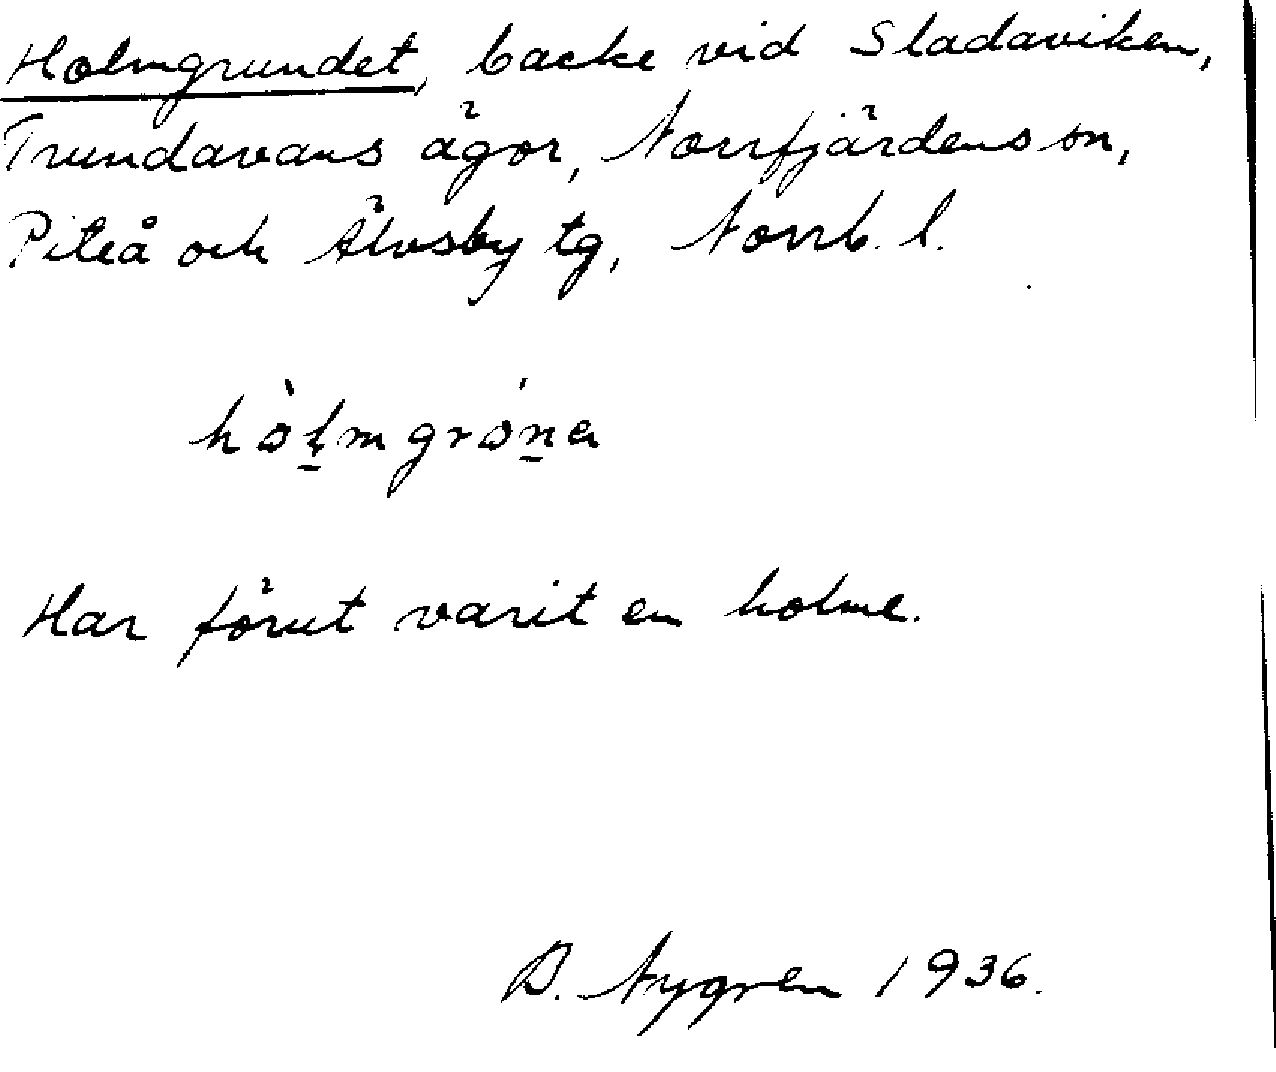 Holmgrundet, backe vid Sladaviken,
Trundavans ägor, Norrfjärdens sn,
Piteå och Älvsby tg, Norrb. l.
hòḻmgróṉa
Har förut varit en holme.
B. Nygren 1936.